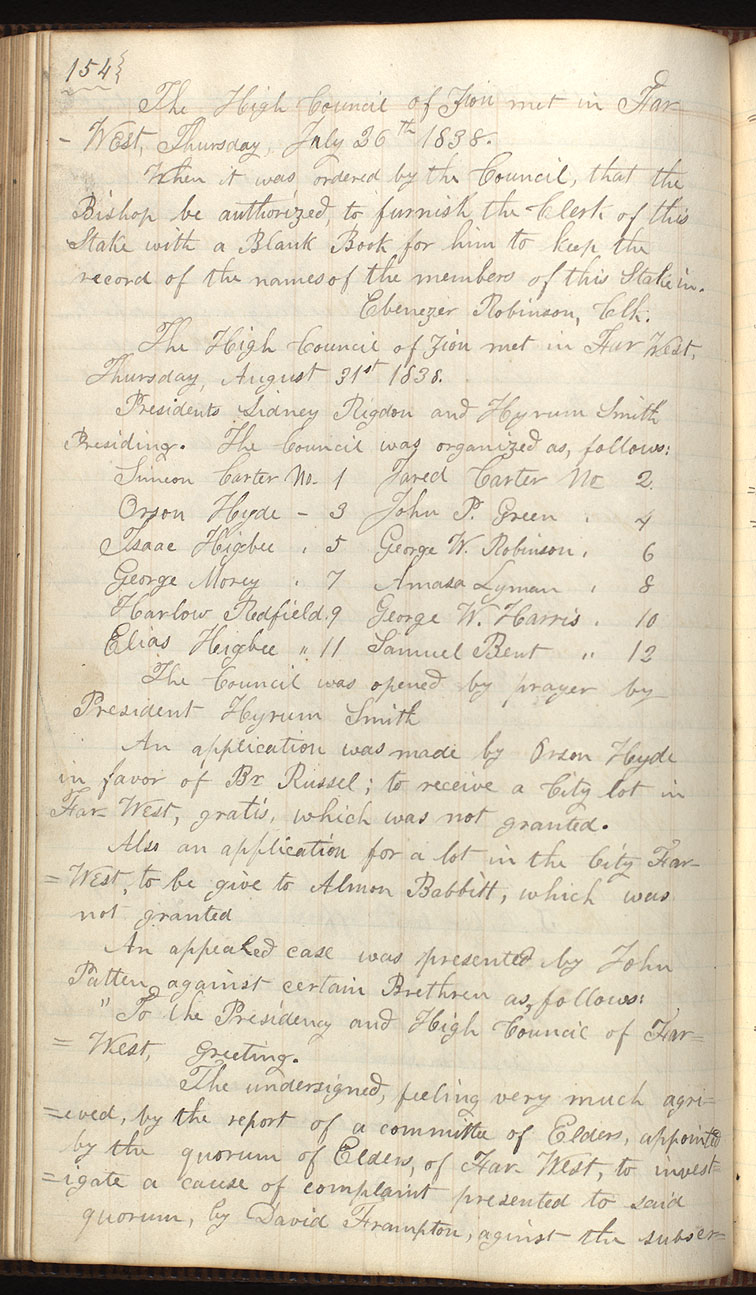 154
The High Council of Zion met in Far-
- West, Thursday, July 26th 1838.
When it was ordered by the Council, that the
Bishop be authorized, to furnish the Clerk of this
Stake with a Blank Book for him to keep the
record of the names of the members of this Stake in.
Ebenezer Robinson, Clk.
The High Council of Zion met in Far West,
Thursday, August 31st 1838.
Presidents Sidney Rigdon and Hyrum Smith
Presiding. The Council was organized as, follows:
Simeon Carter No. 1 Jared Carter No 2.
Orson Hyde - 3 John P. Green . 4
Isaac Higbee . 5 George W. Robinson . 6
George Morey . 7 Amasa Lyman . 8
Harlow Redfield . 9 George W. Harris . 10
Elias Higbee " 11 Samuel Bent " 12
The Council was opened by prayer by
President Hyrum Smith
An application was made by Orson Hyde
in favor of Br. Russel; to receive a City lot in
Far- West, gratis, which was not granted.
Also an application for a lot in the City Far-
= West, to be give to Almon Babbitt, which was
not granted
An appealed case was presented by John
Patten against certain Brethren as, follows:
"To the Presidency and High Council of Far=
= West, Greeting.
The undersigned, feeling very much agri=
=eved, by the report of a committee of Elders, appointed
by the quorum of Elders, of Far- West, to invest=
=igate a cause of complaint presented to said
quorum, by David Frampton, aginst the subscr=